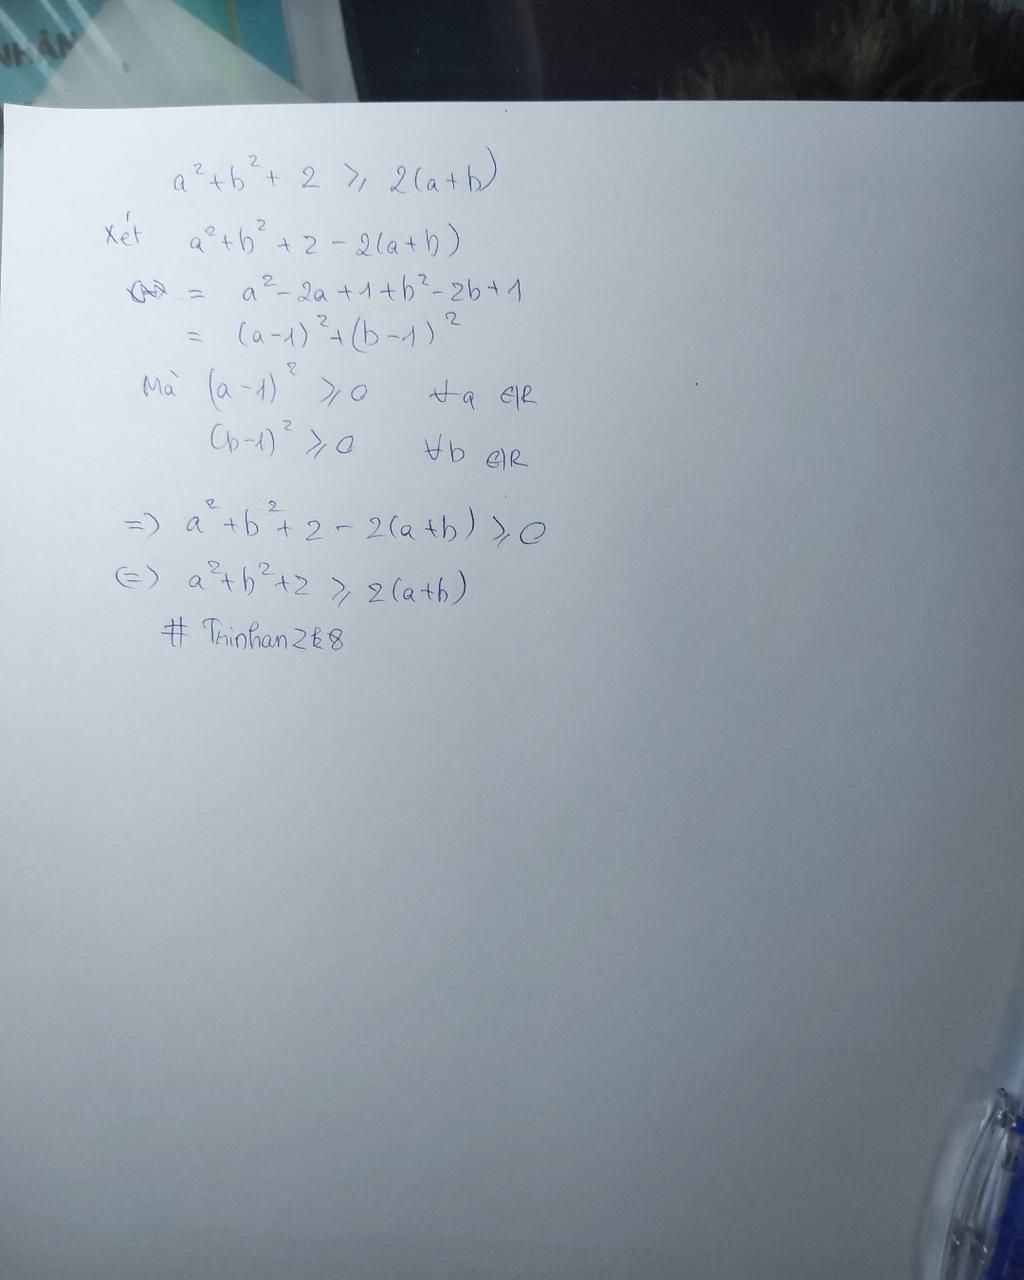 NHÂN
a²+b²+ 2 ⩾ 2(a+b)
Xét a²+b²+2-2(a+b)
= a²-2a+1+b²-2b+1
= (a-1)²+(b-1)²
Mà (a-1)² ⩾0 ∀a ∈R
(b-1)² ⩾0 ∀b ∈R
=> a²+b²+2-2(a+b) ⩾0
(=) a²+b²+2 ⩾ 2(a+b)
# Thinhan2k8